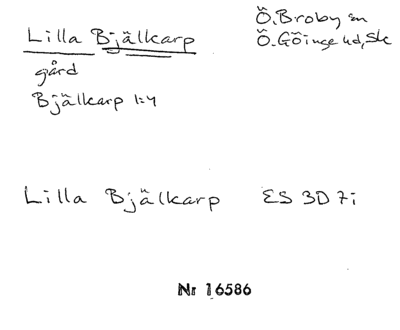 Lilla Bjälkarp
Ö. Broby sn
Ö. Göinge hd, Sk
gård
Bjälkarp 1:4
Lilla Bjälkarp ES 3D 7i
Nr 16586